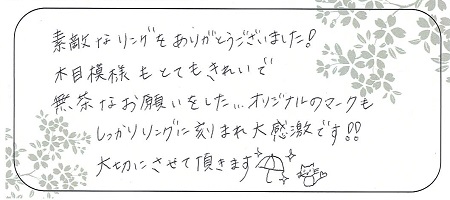 素敵なリングをありがとうございました!
木目模様もとてもきれいで
無茶なお願いをした…オリジナルのマークも
しっかりリングに刻まれ大感激です!!
大切にさせて頂きます